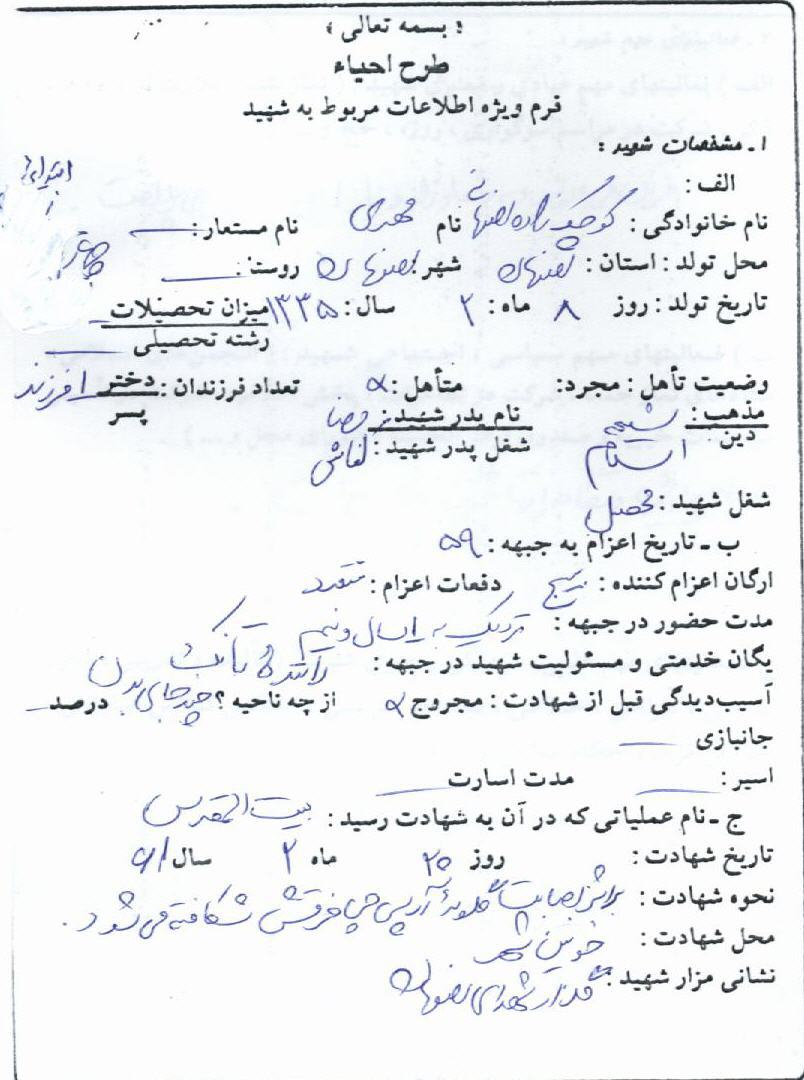 « بسمه تعالی »
طرح احیاء
فرم ویژه اطلاعات مربوط به شهید
۱ـ مشخصات شهید :
الف :
نام خانوادگی : کوچک زاده اصفهانی نام مهدی نام مستعار :
محل تولد : استان : اصفهان شهر : اصفهان روستا :
تاریخ تولد : روز ۸ ماه : ۲ سال : ۱۳۳۵ میزان تحصیلات
رشته تحصیلی
وضعیت تأهل : مجرد : متأهل : تعداد فرزندان : دختر ۱ فرزند
پسر
مذهب : شیعه نام پدر شهید : رضا
دین اسلام شغل پدر شهید : نقاش
شغل شهید : محصل
ب ـ تاریخ اعزام به جبهه : ۵۹
ارگان اعزام کننده : بسیج دفعات اعزام : متعدد
مدت حضور در جبهه : نزدیک به ۱ سال و نیم
یگان خدمتی و مسئولیت شهید در جبهه : راننده تانک
آسیب‌دیدگی قبل از شهادت : مجروح از چه ناحیه ؟ چند جای بدن درصد
جانبازی
اسیر : مدت اسارت
ج ـ نام عملیاتی که در آن به شهادت رسید : بیت المقدس
تاریخ شهادت : روز ۲۵ ماه ۲ سال ۶۱
نحوه شهادت : براثر اصابت گلوله آرپی جی فرقش شکافته می شود .
محل شهادت : خونین شهر
نشانی مزار شهید : گلزار شهدای اصفهان